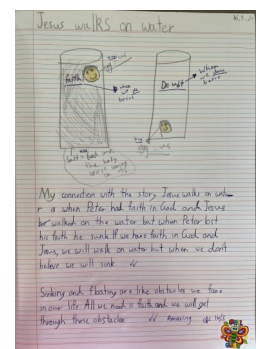 Jesus walks on water
faith
when
we do
beive
Doubt
when
we don't
beive
Salt = bad with
the holy
My connection with the story Jesus walks on wate
r is when Peter had faith in God and Jesus
he walked on the water but when Peter lost
his faith he sunk. If we have faith in God and
Jesus, we will walk on water but when we don't
believe we will sink
Sinking and floating are like obstacles we face
in our life. All we need is faith and we will get
through those obstacles. Amazing